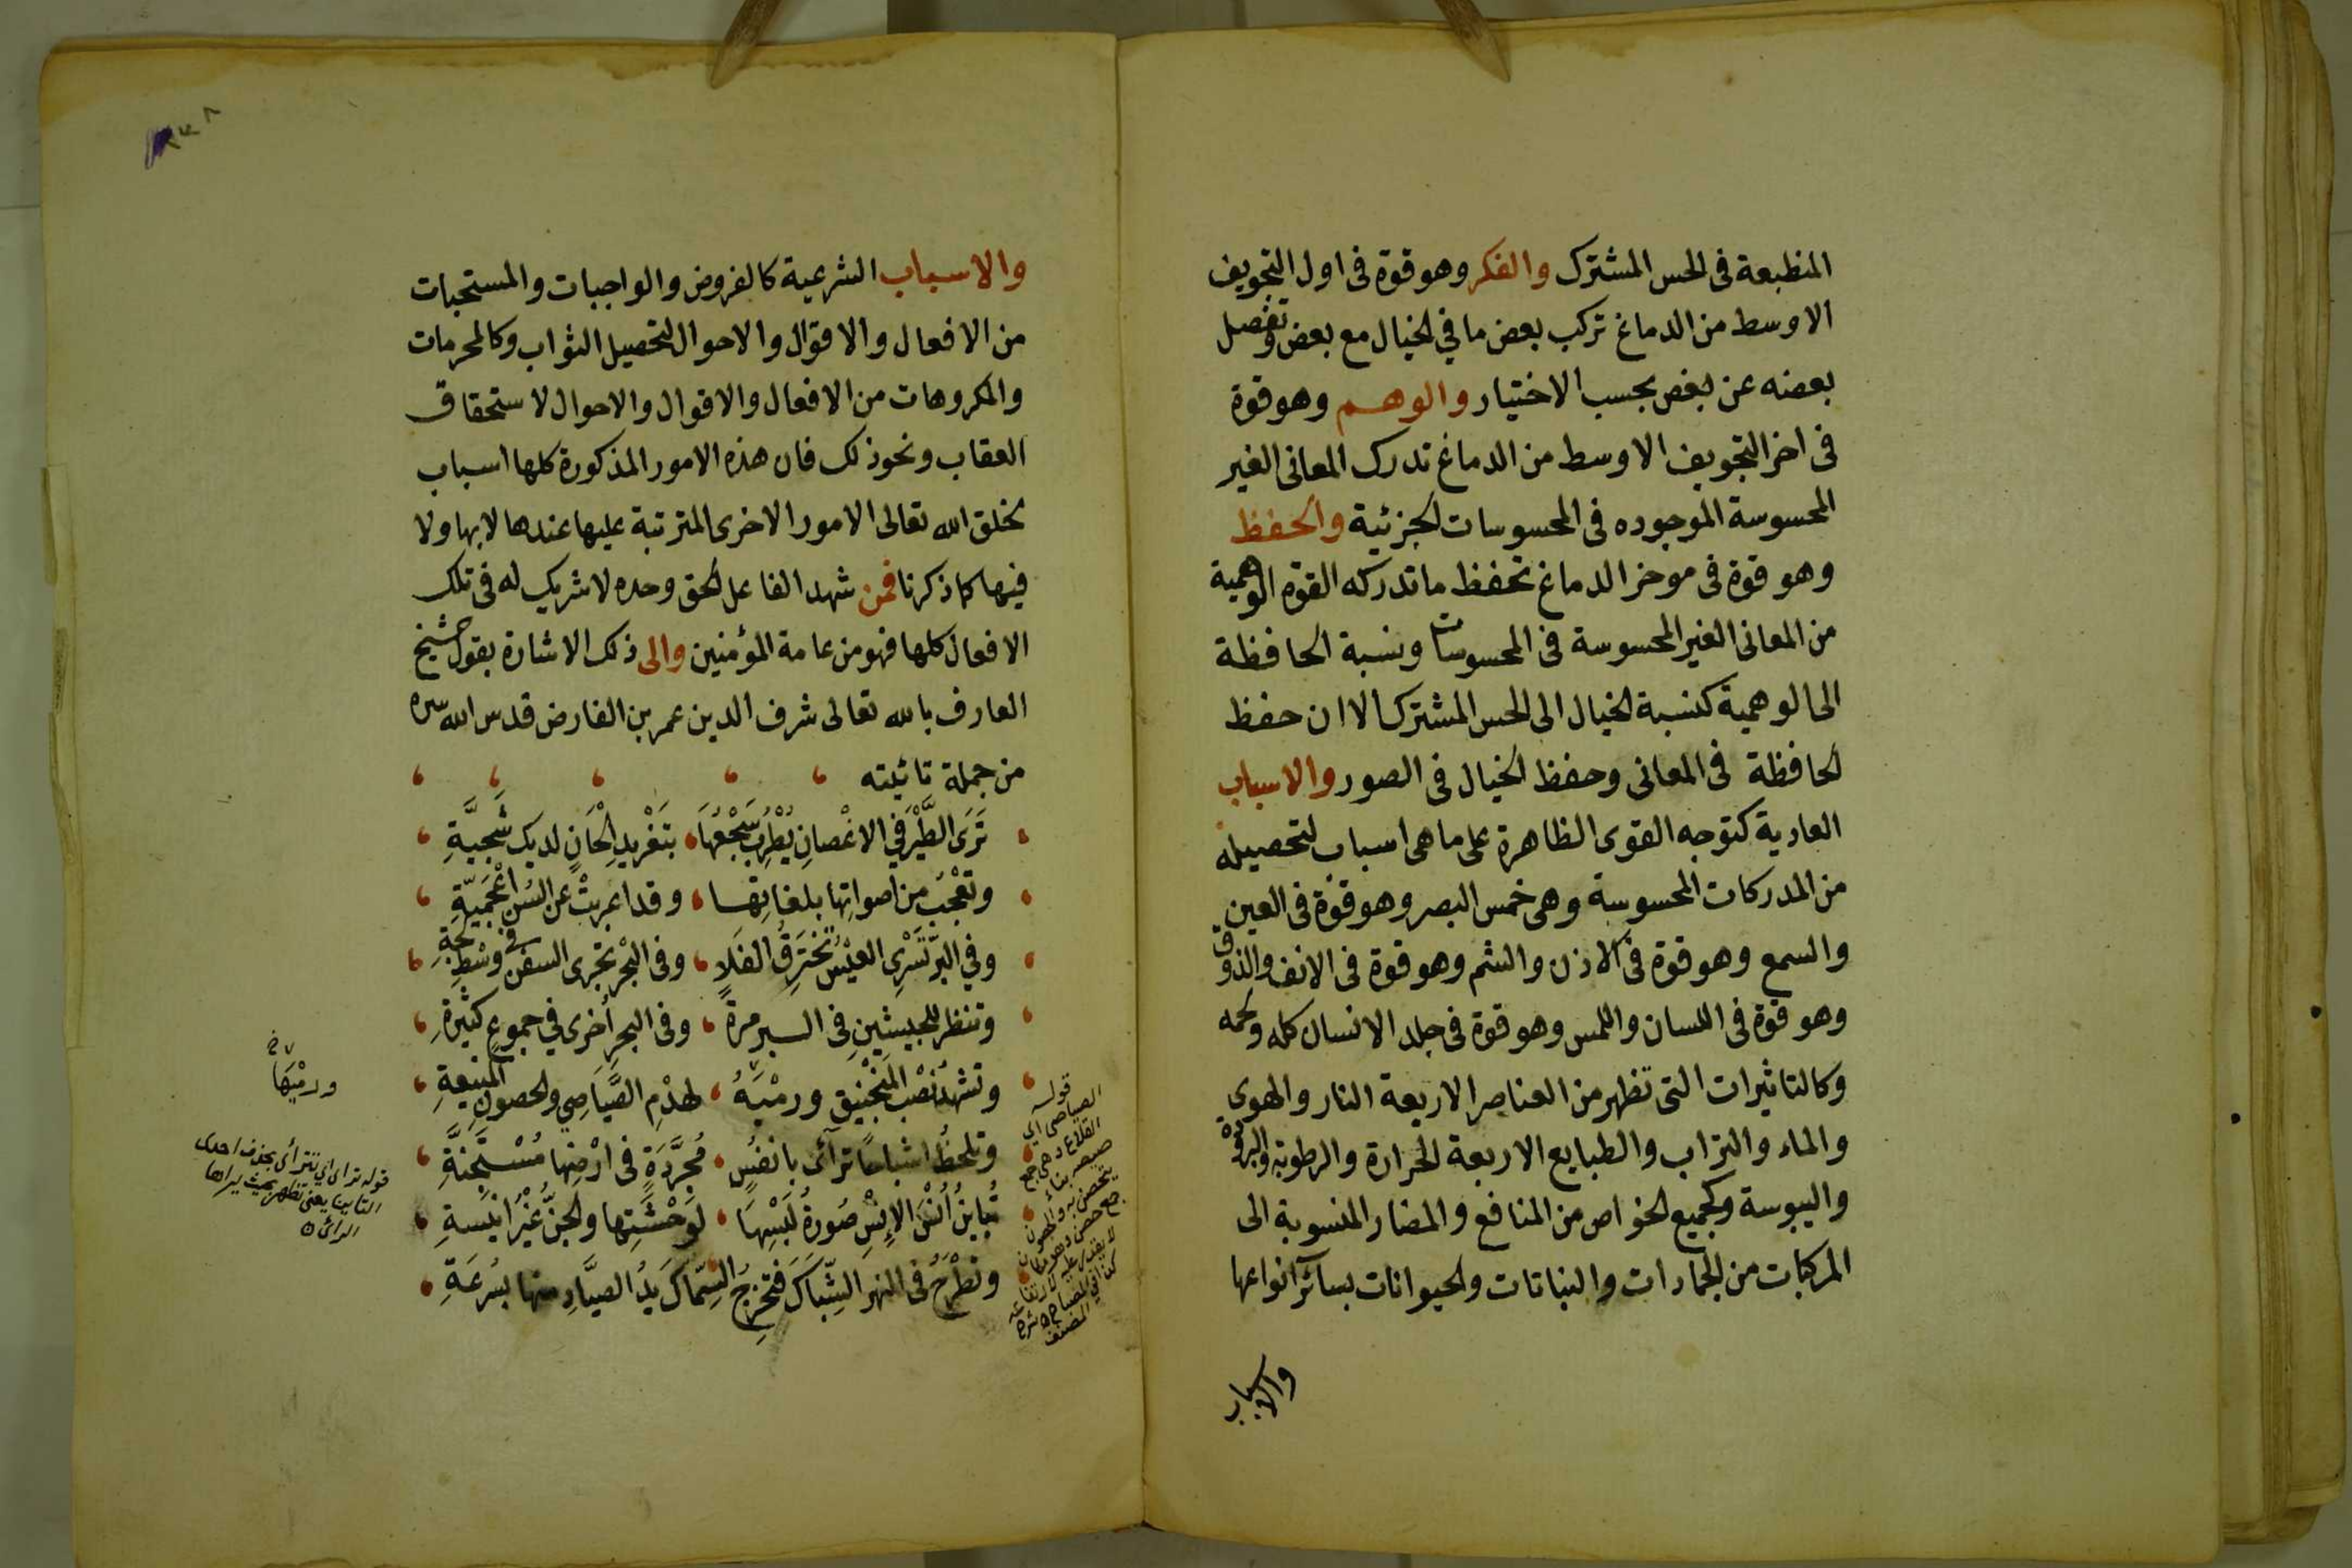 المنطبعة فى الحس المشترك والفكر وهو قوة فى اول التجويف
الاوسط من الدماغ تركب بعض ما في الخيال مع بعض وتفصل
بعضه عن بعض بحسب الاختيار والوهم وهو قوة
فى اخر التجويف الاوسط من الدماغ تدرك المعانى الغير
المحسوسة الموجوده فى المحسوسات الجزئية والحفظ
وهو قوة فى موخر الدماغ تحفظ ما تدركه القوة الوهمية
من المعانى الغير المحسوسة فى المحسوسات ونسبة الحافظة
الى الوهمية كنسبة الخيال الى الحس المشترك الا ان حفظ
الحافظة فى المعانى وحفظ الخيال فى الصور والاسباب
العادية كتوجه القوى الظاهرة على ما هى اسباب لتحصيله
من المدركات المحسوسة وهى خمس البصر وهو قوة فى العين
والسمع وهو قوة فى الاذن والشم وهو قوة فى الانف والذوق
وهو قوة فى اللسان واللمس وهو قوة فى جلد الانسان كله ولحمه
وكالتاثيرات التى تظهر من العناصر الاربعة النار والهوى
والماء والتراب والطبايع الاربعة الحرارة والرطوبة والبرودة
واليبوسة وكجميع الخواص من المنافع والمضار المنسوبة الى
المركبات من الجمادات والنباتات والحيوانات بسائر انواعها
والاسباب
والاسباب الشرعية كالفروض والواجبات والمستحبات
من الافعال والاقوال والاحوال لتحصيل الثواب وكالمحرمات
والمكروهات من الافعال والاقوال والاحوال لاستحقاق
العقاب ونحو ذلك فان هذه الامور المذكورة كلها اسباب
يخلق الله تعالى الامور الاخرى المترتبة عليها عندها لا بها ولا
فيها كما ذكرنا فمن شهد الفاعل الحق وحده لا شريك له فى تلك
الافعال كلها فهو من عامة المؤمنين والى ذلك الاشارة بقول الشيخ
العارف بالله تعالى شرف الدين عمر بن الفارض قدس الله سره
من جملة تائيته
تَرَى الطَّيْرَ فِي الاغْصانِ يُطْرِبُ سَجْعُهَا بتَغْرِيدِ الْحَانٍ لديك شَجيَّةِ
وتَعْجَبُ من اصواتِها بلغاتِها وقد اعربتْ عن السُنٍ اعْجَمِيَّةِ
وفي البرّ تَسْرِى العيْسُ تَخْتَرِقُ الفَلَا وفى البْحرِ تجْرى السفن فى وسْطِ لُجّةِ
وتنظر للجيشَينِ فى البر مرةً وفى البحرِ أخرى في جموعٍ كثيرةِ
وتشهدُ نَصْبَ المَنْجَنِيقِ ورمْيَهُ لهدْمِ الصَّيَاصِي والحصونِ المنيعةِ
وتلحظُ اشباحًا تراآى بانفُسٍ مُجرَّدَةٍ فى ارْضِها مُسْتَجِنَّةِ
تُبايِنُ أُنْسَ الإِنْسِ صُورةُ لُبْسِهَا لوَحْشَتِها والجنُّ غيْرُ انيسةِ
وتطْرَحُ فى النهرِ الشِّبَاكَ فتخرِجُ السِّمَاكَ يَدُ الصيَّادِ منها بسُرعَةِ
قوله
الصياصى اى
القلاع وهى جمع
صيصه بناء
يتحصن به والحصون
جمع حصن وهو مكان
لا يقدر عليه لارتفاعه
كذا فى المصباح شرح
المصنف
ورمْيَها
قوله تراى اى تتراآى بحذف احدى
التاءين يعنى تظهر بحيث يراها
الرائى